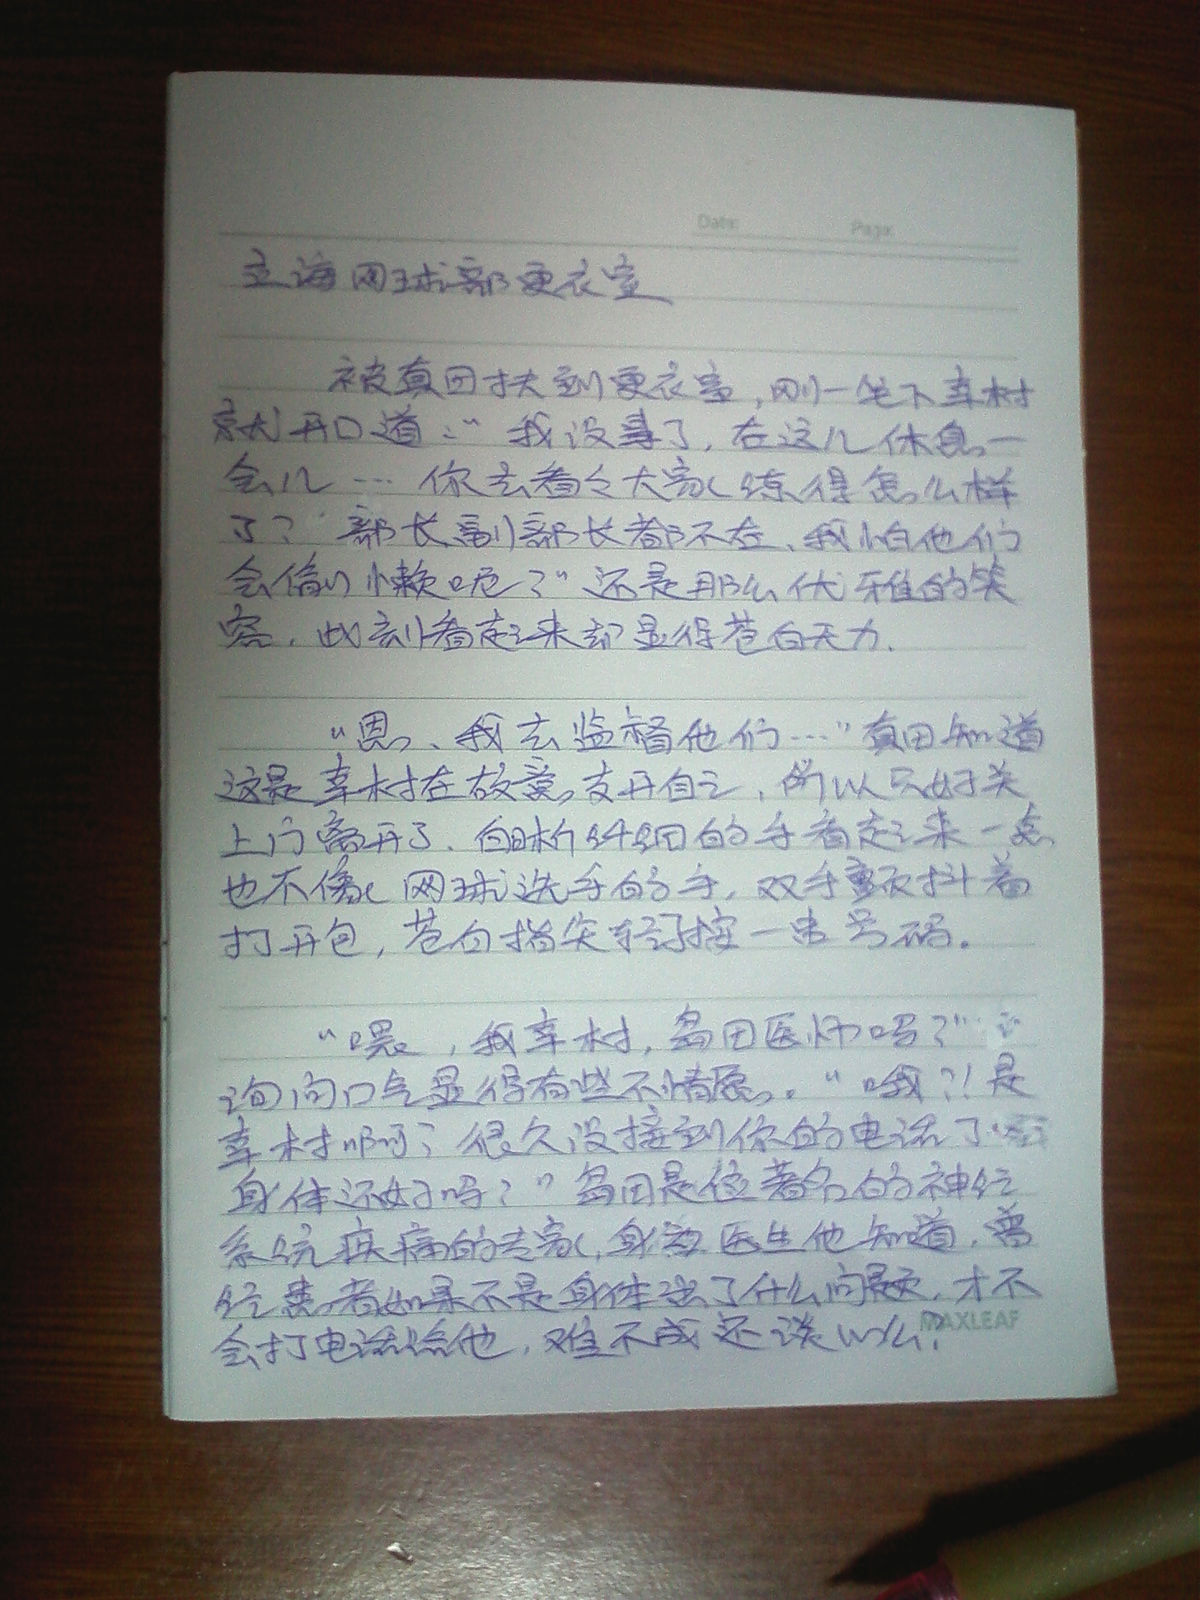 Date: Page:
立海网球部更衣室
被真田扶到更衣室,刚一坐下幸村
就开口道:“我没事了,在这儿休息一
会儿…你去看看大家练得怎么样
了?部长副部长都不在、我怕他们
会偷懒呢?”还是那么优雅的笑
容,此刻看起来却显得苍白无力.
“恩、我去监督他们…”真田知道
这是幸村在故意支开自己,所以只好关
上门离开了、白晰纤细的手看起来一点
也不像网球选手的手,双手颤抖着
打开包,苍白指尖轻按一串号码。
“喂,我幸村,岛田医师吗?”
询问口气显得有些不情愿。“哦?!是
幸村啊?很久没接到你的电话了
身体还好吗?”岛田是位著名的神经
系统疾病的专家,身为医生他知道,曾
经患者如果不是身体出了什么问题,才不
会打电话给他,难不成还谈心么?
MAXLEAF